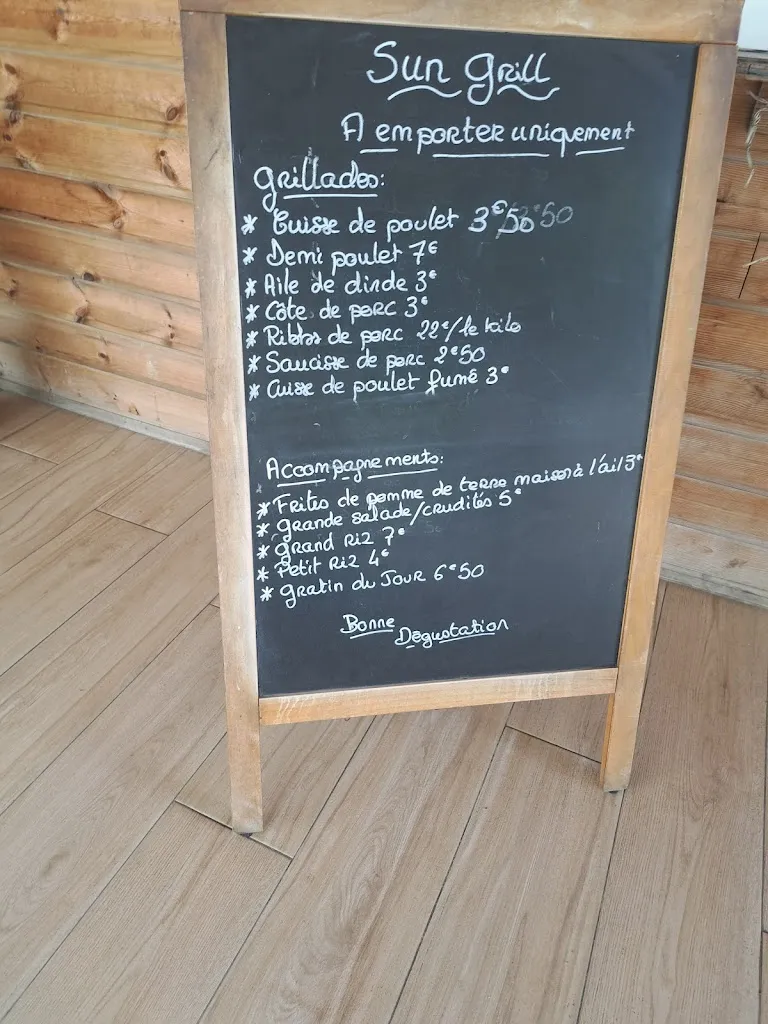 Sun Grill
A emporter uniquement
Grillades:
* Cuisse de poulet 3€50 3€50
* Demi poulet 7€
* Aile de dinde 3€
* Côte de porc 3€
* Ribbs de porc 22€/le kilo
* Saucisse de porc 2€50
* Cuisse de poulet fumé 3€
Accompagnements:
* Frites de pomme de terre maison à l'ail 3€
* Grande salade/crudités 5€
* Grand Riz 7€
* Petit Riz 4€
* Gratin du Jour 6€50
Bonne
Dégustation